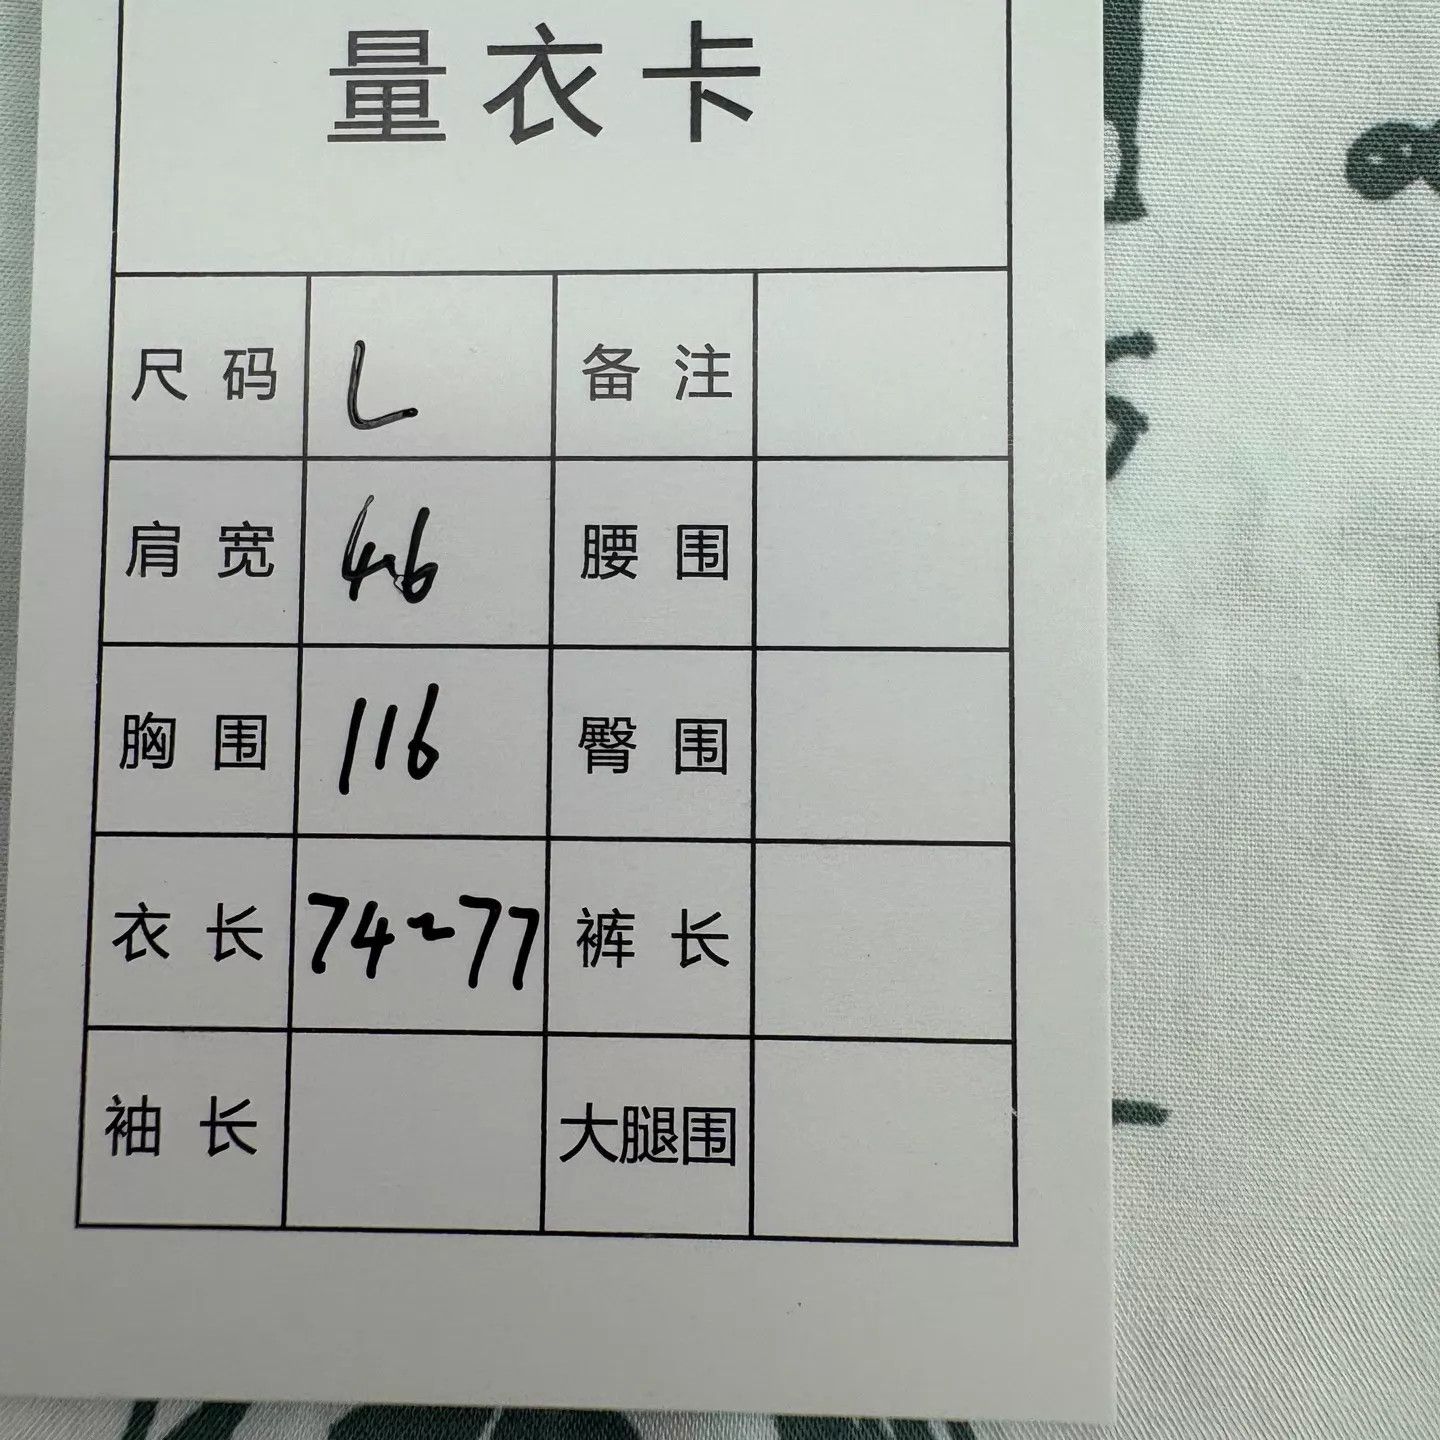 量衣卡
尺码 L 备注
肩宽 46 腰围
胸围 116 臀围
衣长 74~77 裤长
袖长 大腿围